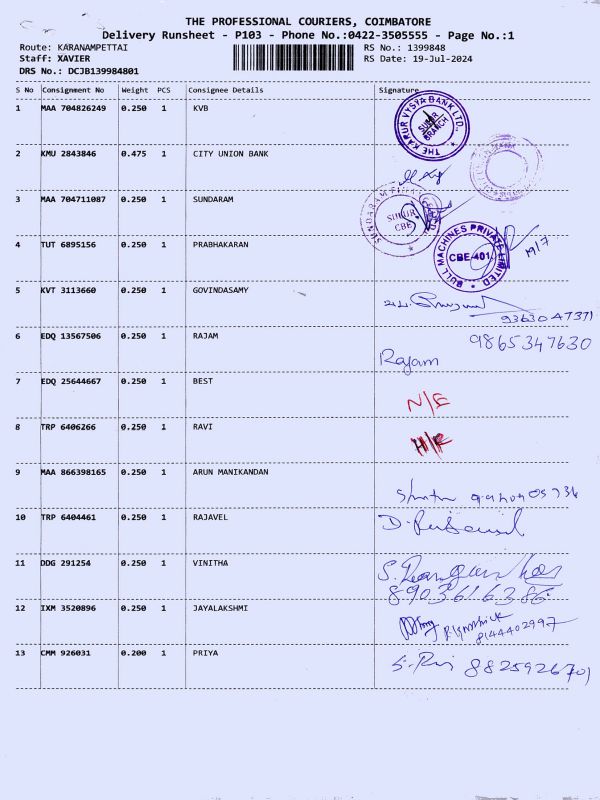 THE PROFESSIONAL COURIERS, COIMBATORE
Delivery Runsheet - P103 - Phone No.:0422-3505555 - Page No.:1
Route: KARANAMPETTAI RS No.: 1399848
Staff: XAVIER RS Date: 19-Jul-2024
DRS No.: DCJB139984801
S No Consignment No Weight PCS Consignee Details Signature
1 MAA 704826249 0.250 1 KVB
THE KARUR VYSYA BANK LTD.,
SULUR
BRANCH
2 KMU 2843846 0.475 1 CITY UNION BANK
3 MAA 704711087 0.250 1 SUNDARAM
SULUR
CBE
4 TUT 6895156 0.250 1 PRABHAKARAN
BULL MACHINES PRIVATE LIMITED
CBE-401
19/7
5 KVT 3113660 0.250 1 GOVINDASAMY
9363047371
6 EDQ 13567506 0.250 1 RAJAM
9865347630
Rajam
7 EDQ 25644667 0.250 1 BEST
N/E
8 TRP 6406266 0.250 1 RAVI
9 MAA 866398165 0.250 1 ARUN MANIKANDAN
10 TRP 6404461 0.250 1 RAJAVEL
11 DDG 291254 0.250 1 VINITHA
8903616386
12 IXM 3520896 0.250 1 JAYALAKSHMI
8144402997
13 CMM 926031 0.200 1 PRIYA
8825926701